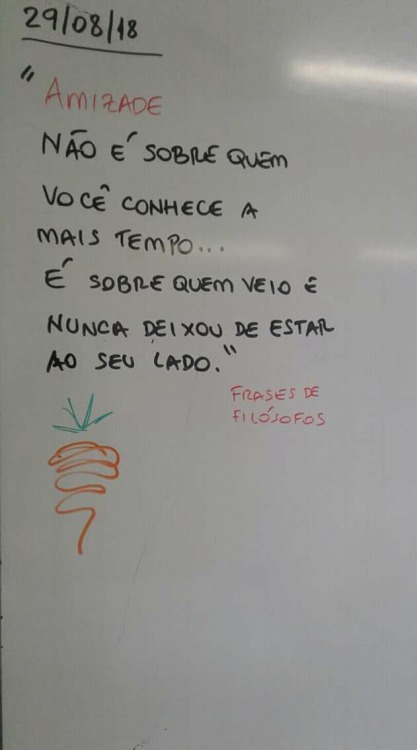 29/08/18
"AMIZADE
NÃO É SOBRE QUEM
VOCÊ CONHECE A
MAIS TEMPO...
É SOBRE QUEM VEIO E
NUNCA DEIXOU DE ESTAR
AO SEU LADO."
FRASES DE
FILÓSOFOS